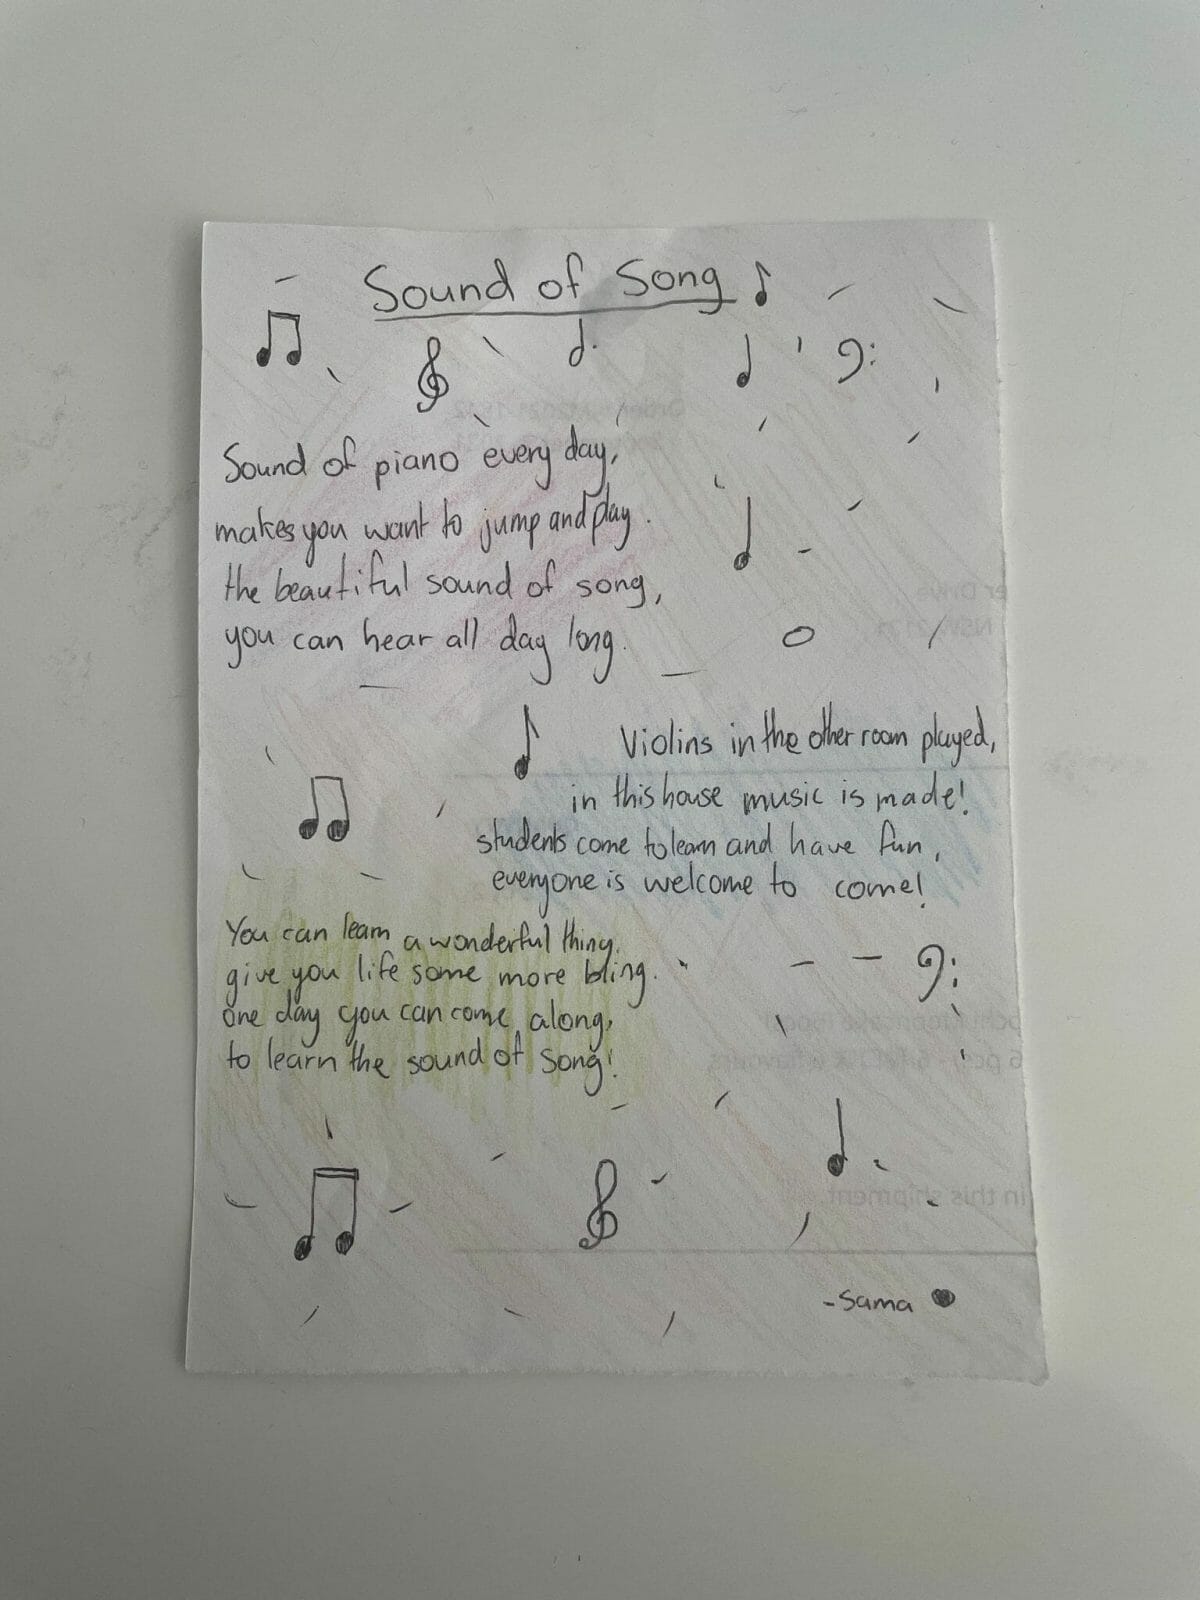 Sound of Song
Sound of piano every day,
makes you want to jump and play.
the beautiful sound of song,
you can hear all day long.
Violins in the other room played,
in this house music is made!
students come to learn and have fun,
everyone is welcome to come!
You can learn a wonderful thing,
give you life some more bling.
one day you can come along,
to learn the sound of song!
-Sama